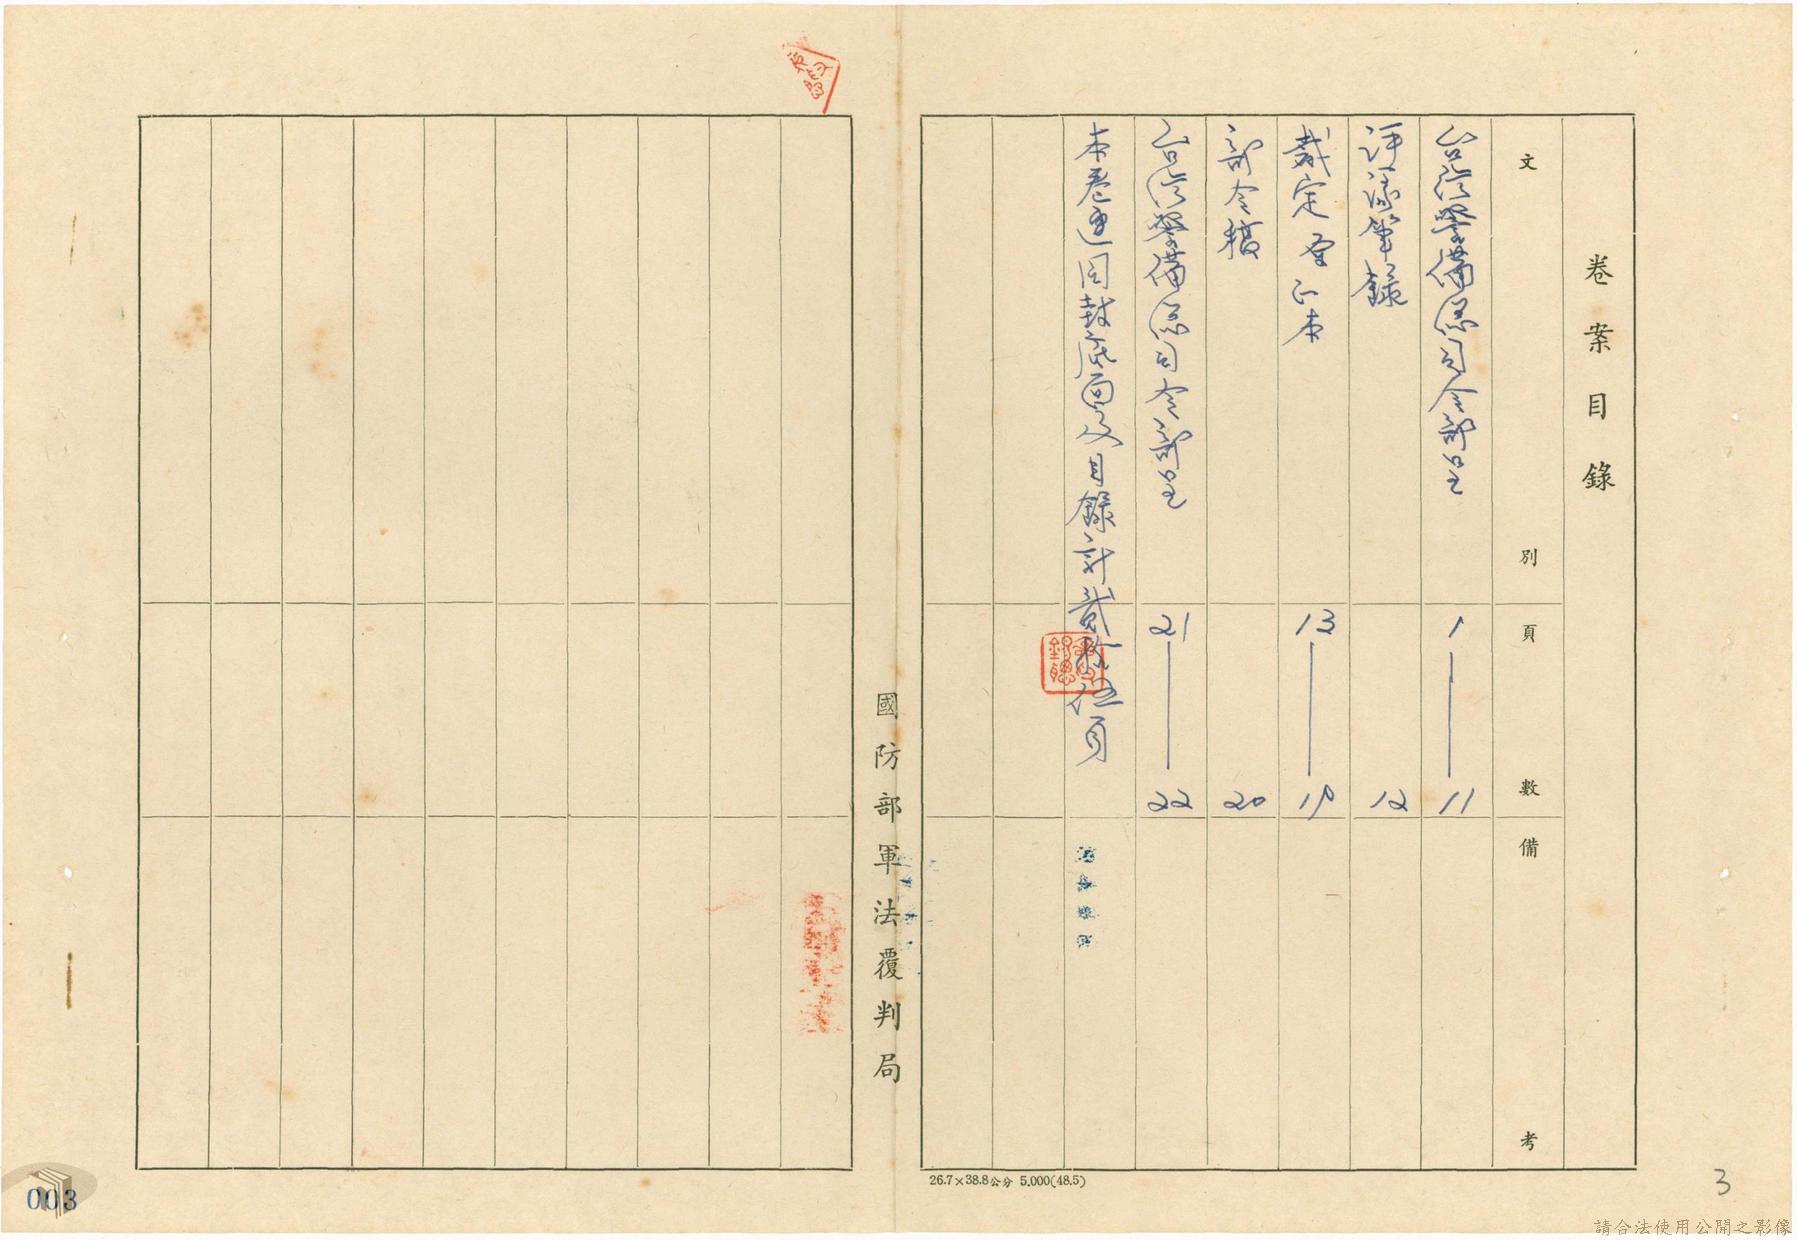 卷案目錄
文別 頁數 備考
台灣警備總司令部呈 1——11
評議筆錄 12
裁定書正本 13——19
部令稿 20
台灣警備總司令部呈 21——22
本卷連同封底面及目錄計貳拾伍頁
國防部軍法覆判局
26.7×38.8公分 5,000(48.5)
3
003
請合法使用公開之影像